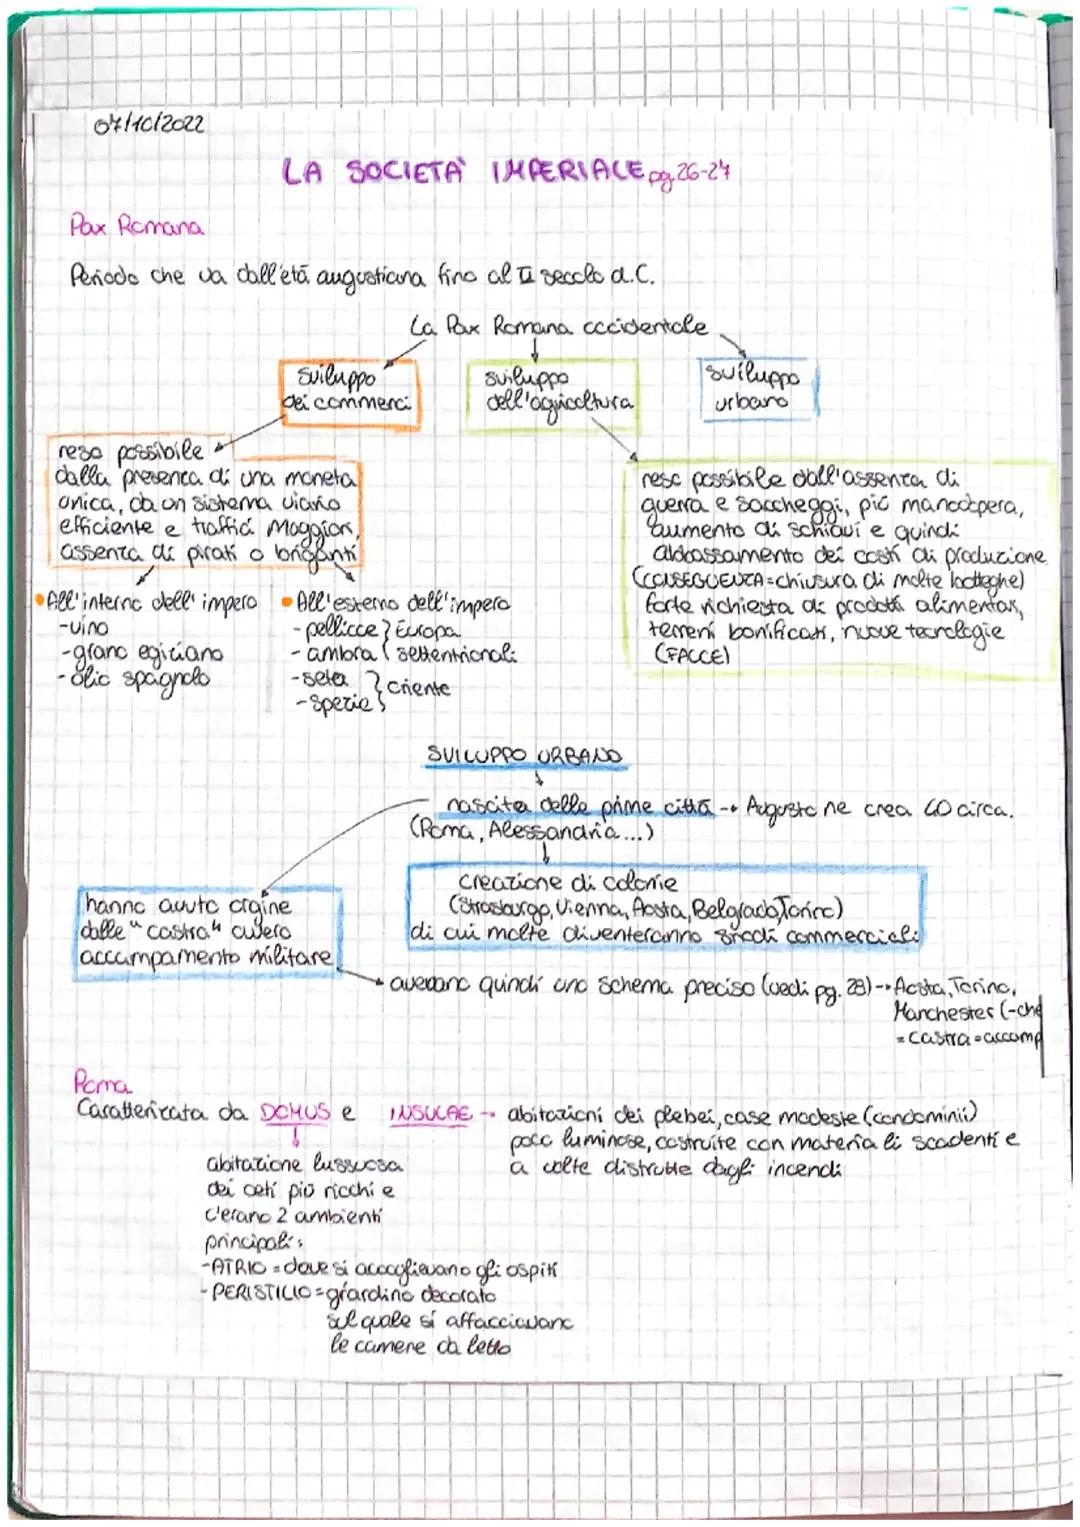 07/10/2022
LA SOCIETA' IMPERIALE pg 26-27
Pax Romana
Periodo che va dall'età augustiana fino al II secolo d.C.
La Pax Romana occidentale
sviluppo
dei commerci
sviluppo
dell'agricoltura
sviluppo
urbano
reso possibile
dalla presenza di una moneta
unica, da un sistema viario
efficiente e traffici maggiori,
assenza di pirati o briganti
reso possibile dall'assenza di
guerra e saccheggi, più manodopera,
aumento di schiavi e quindi
abbassamento dei costi di produzione
(CONSEGUENZA = chiusura di molte botteghe)
forte richiesta di prodotti alimentari,
terreni bonificati, nuove tecnologie
(FALCE)
• All'interno dell'impero
-vino
-grano egiziano
-olio spagnolo
• All'esterno dell'impero
- pellicce } Europa
- ambra { settentrionali
-seta } oriente
-spezie }
SVILUPPO URBANO
nascita delle prime città → Augusto ne crea 40 circa.
(Roma, Alessandria ...)
creazione di colonie
(Strasburgo, Vienna, Aosta, Belgrado, Torino)
di cui molte diventeranno snodi commerciali
hanno avuto origine
dalle "castra" ovvero
accampamento militare
avevano quindi uno schema preciso (vedi pg. 28) → Aosta, Torino,
Manchester (-che
= castra = accamp
Roma
Caratterizzata da DOMUS e INSULAE → abitazioni dei plebei, case modeste (condominii)
poco luminose, costruite con materiali scadenti e
a volte distrutte dagli incendi
abitazione lussuosa
dei ceti più ricchi e
c'erano 2 ambienti
principali:
-ATRIO = dove si accoglievano gli ospiti
- PERISTILIO = giardino decorato
sul quale si affacciavano
le camere da letto